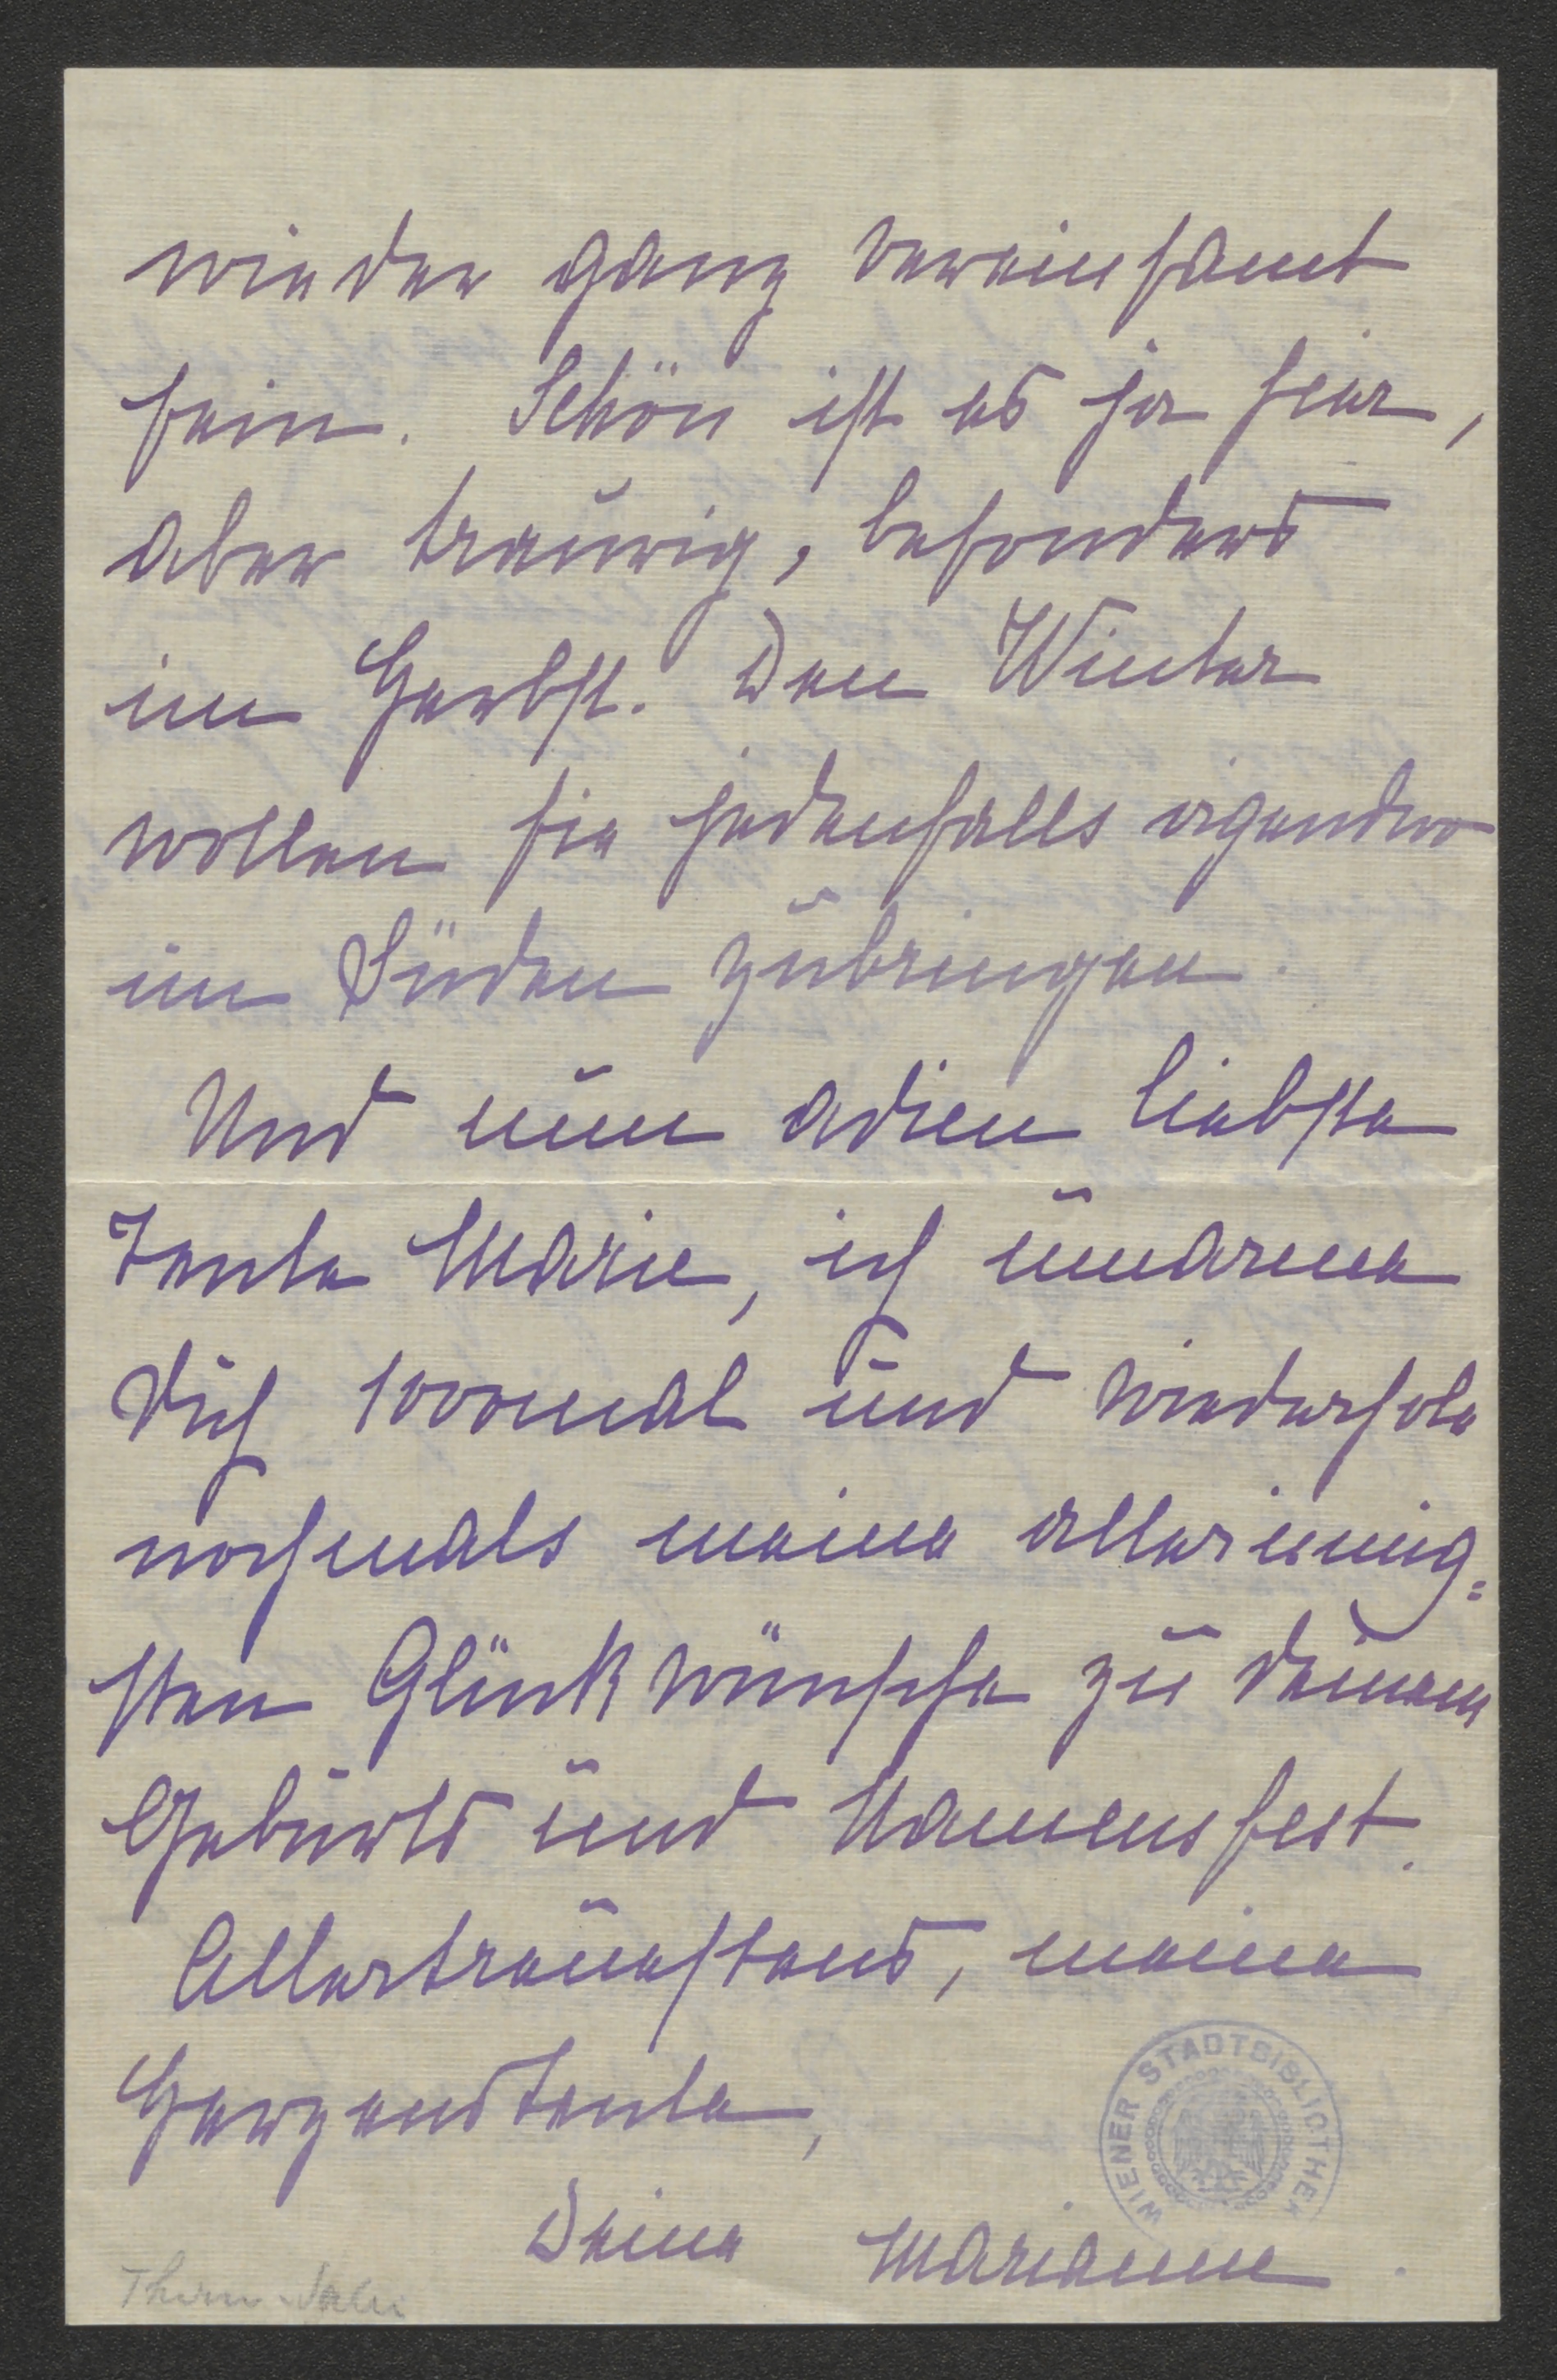 wieder ganz vereinsamt
sein. Schön ist es ja hier,
aber traurig, besonders
im Herbst. Den Winter
wollen sie jedenfalls irgendwo
im Süden zubringen.
Und nun adieu liebste
Tante Marie, ich umarme
Dich 1000mal und wiederhole
nochmals meine allerinnig=
sten Glückwünsche zu deinem
Geburts und Namensfest.
Allertreuestens, meine
Herzenstante,
Deine Marianne.
WIENER STADTBIBLIOTHEK